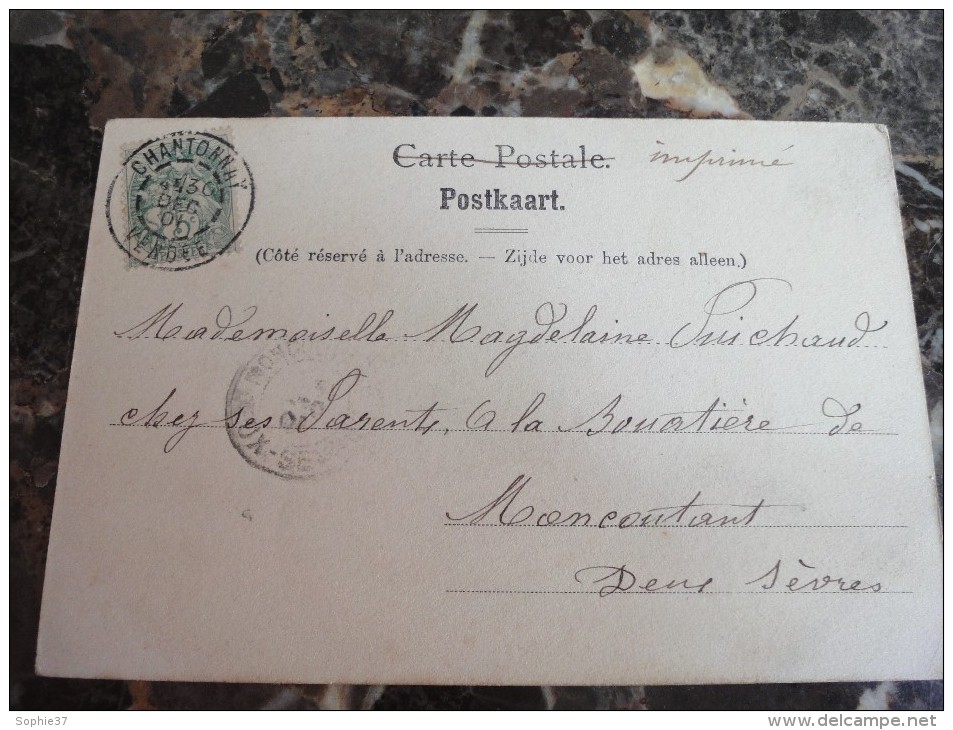 CHANTONNAY
30
DEC
VENDEE
Carte Postale. imprimé
Postkaart.
(Côté réservé à l'adresse. — Zijde voor het adres alleen.)
Mademoiselle Magdelaine Puichaud
chez ses Parents, à la Bouatière de
Moncoutant
Deux Sèvres
Sophie37
www.delcampe.net